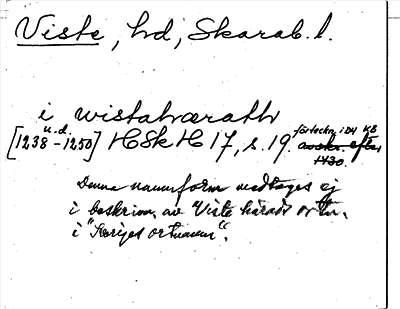 Viste, hd, Skarab. l.
i wistahærath
u. d. förteckn. i D4 KB
[1238-1250] HSH 17, s. 19. avskr. efter
1430.
Denna namnform medtages ej
i beskrivn. av Viste härads ortn.
i "Sveriges ortnamn".